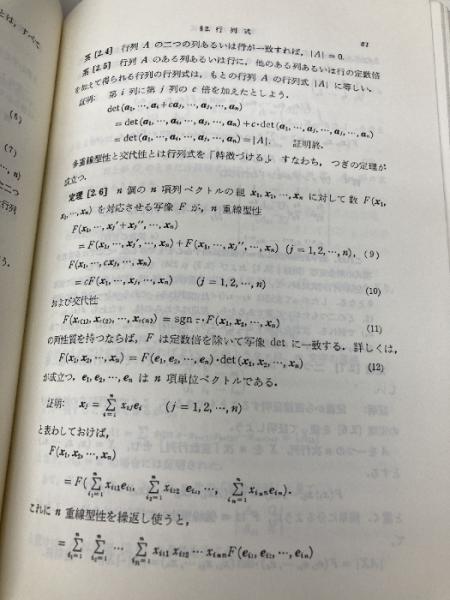 §2. 行列式 61
系 [2.4] 行列 A の二つの列あるいは行が一致すれば, |A| = 0.
系 [2.5] 行列 A のある列あるいは行に, 他のある列あるいは行の定数倍
を加えて得られる行列の行列式は, もとの行列 A の行列式 |A| に等しい.
証明: 第 i 列に第 j 列の c 倍を加えたとしよう.
det(a₁, …, aᵢ+caⱼ, …, aⱼ, …, aₙ)
= det(a₁, …, aᵢ, …, aⱼ, …, aₙ) + c·det(a₁, …, aⱼ, …, aⱼ, …, aₙ)
= det(a₁, …, aᵢ, …, aⱼ, …, aₙ) = |A|. 証明終.
多重線型性と交代性とは行列式を「特徴づける」. すなわち, つぎの定理が
成立つ.
定理 [2.6] n 個の n 項列ベクトルの組 x₁, x₂, …, xₙ に対して数 F(x₁,
x₂, …, xₙ) を対応させる写像 F が, n 重線型性
F(x₁, …, xⱼ′+xⱼ″, …, xₙ)
= F(x₁, …, xⱼ′, …, xₙ) + F(x₁, …, xⱼ″, …, xₙ) (j = 1, 2, …, n), (9)
F(x₁, …, cxⱼ, …, xₙ)
= cF(x₁, …, xⱼ, …, xₙ) (j = 1, 2, …, n) (10)
および交代性
F(x_{τ(1)}, x_{τ(2)}, …, x_{τ(n)}) = sgn τ·F(x₁, x₂, …, xₙ) (11)
の両性質を持つならば, F は定数倍を除いて写像 det に一致する. 詳しくは,
F(x₁, x₂, …, xₙ) = F(e₁, e₂, …, eₙ)·det(x₁, x₂, …, xₙ) (12)
が成立つ. e₁, e₂, …, eₙ は n 項単位ベクトルである.
証明: xⱼ = Σ_{i=1}^{n} xᵢⱼeᵢ (j = 1, 2, …, n)
と表わしておけば,
F(x₁, x₂, …, xₙ)
= F(Σ_{i₁=1}^{n} x_{i₁1}e_{i₁}, Σ_{i₂=1}^{n} x_{i₂2}e_{i₂}, …, Σ_{iₙ=1}^{n} x_{iₙn}e_{iₙ}).
これに n 重線型性を繰返し使うと,
= Σ_{i₁=1}^{n} Σ_{i₂=1}^{n} … Σ_{iₙ=1}^{n} x_{i₁1} x_{i₂2} … x_{iₙn} F(e_{i₁}, e_{i₂}, …, e_{iₙ})
とは, すべて
(6)
(7)
, n)
ニつ
行列
う.
(8)